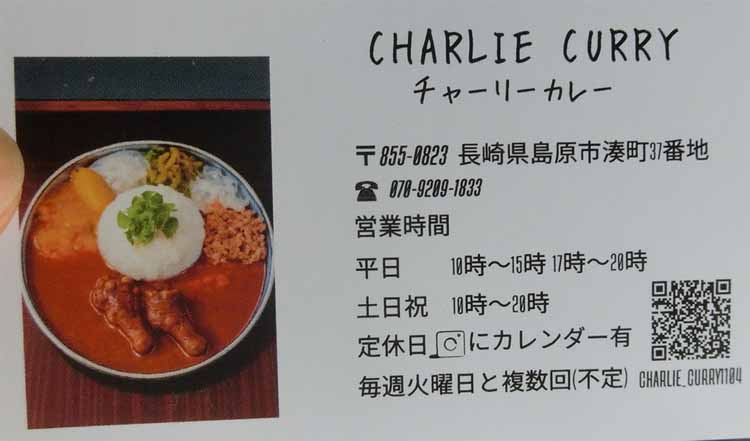 CHARLIE CURRY
チャーリーカレー
〒855-0823 長崎県島原市湊町37番地
☎ 070-9209-1833
営業時間
平日 10時～15時 17時～20時
土日祝 10時～20時
定休日 にカレンダー有
毎週火曜日と複数回(不定) CHARLIE_CURRY1104